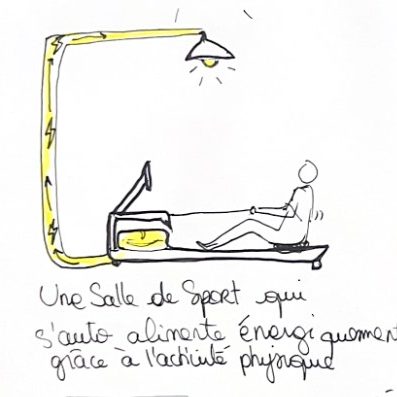 Une Salle de Sport qui
s'auto alimente énergiquement
grâce à l'activité physique